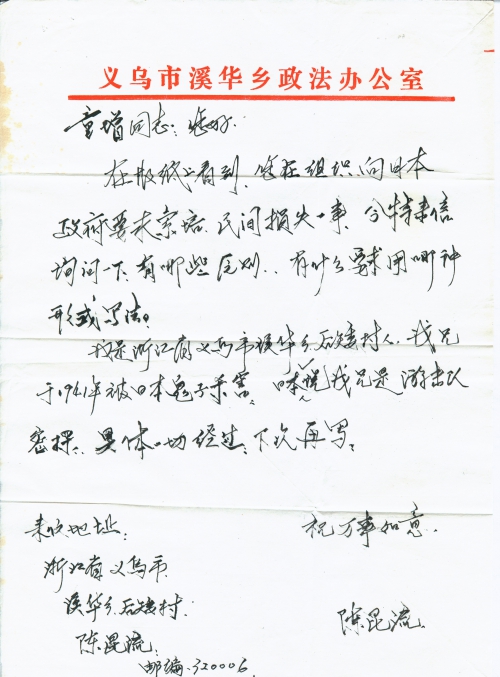 义乌市溪华乡政法办公室
童增同志：您好.
在报纸上看到，您在组织向日本
政府要求索赔民间损失一事，今特来信
询问一下，有哪些区别，有什么要求用哪种
形式写法。
我是浙江省义乌市溪华乡后村人，我兄
于1941年被日本鬼子杀害，日本说我兄是游击队
密探，具体一切经过，下次再写。
祝万事如意.
来信地址：
浙江省义乌市
溪华乡后村
陈昆流.
陈昆流.
邮编.322006.